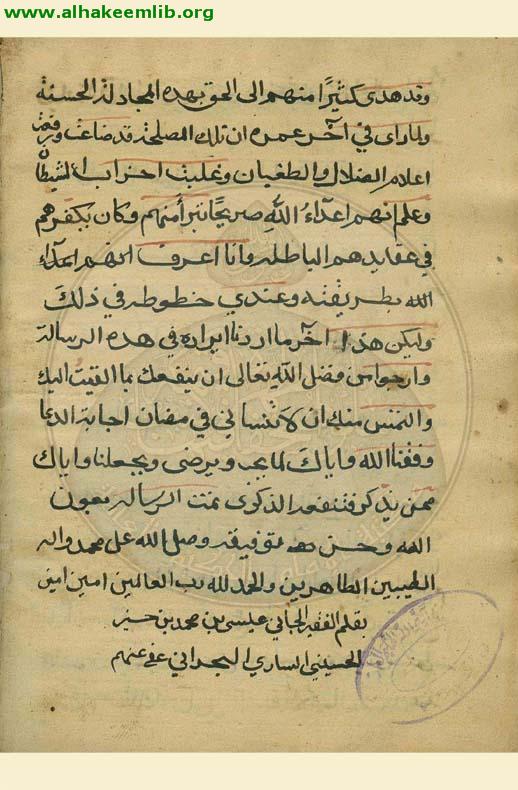 www.alhakeemlib.org
وقد هدى كثيرًا منهم الى الحق بهذه المجادلة الحسنة
ولما راى في آخر عمره ان تلك المصلحة قد ضاعت
اعلام الضلال والطغيان وغلبت احزاب الشيطان
وعلم انهم اعدآءُ اللهِ صريحًا تبرأ منهم وكان بكفرهم
في عقايدهم الباطله وانا اعرف انهم اعدآء
الله بطريقته وعندي خطوطه في ذلك
وليكن هذا اخر ما اردنا ايراده في هذه الرسالة
وارجوا من فضل الله تعالى ان ينفعك بما القيت اليك
والتمس منك ان لا تنساني في مضان اجابة الدعا
وفقنا الله واياك لما يحب ويرضى ويجعلنا واياك
ممن يذكر فتنفعه الذكرى تمت الرساله بعون
الله وحسن توفيقه وصلى الله على محمد واله
الطيبين الطاهرين والحمد لله رب العالمين امين امين
بقلم الفقير الجاني عيسى بن محمد بن
الحسيني الساري البحراني عفى عنهم